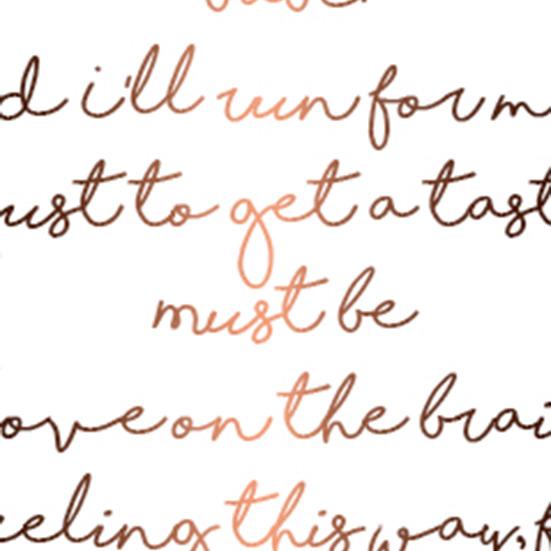 d i'll run for m
ust to get a tast
must be
ove on the brai
eeling this way,